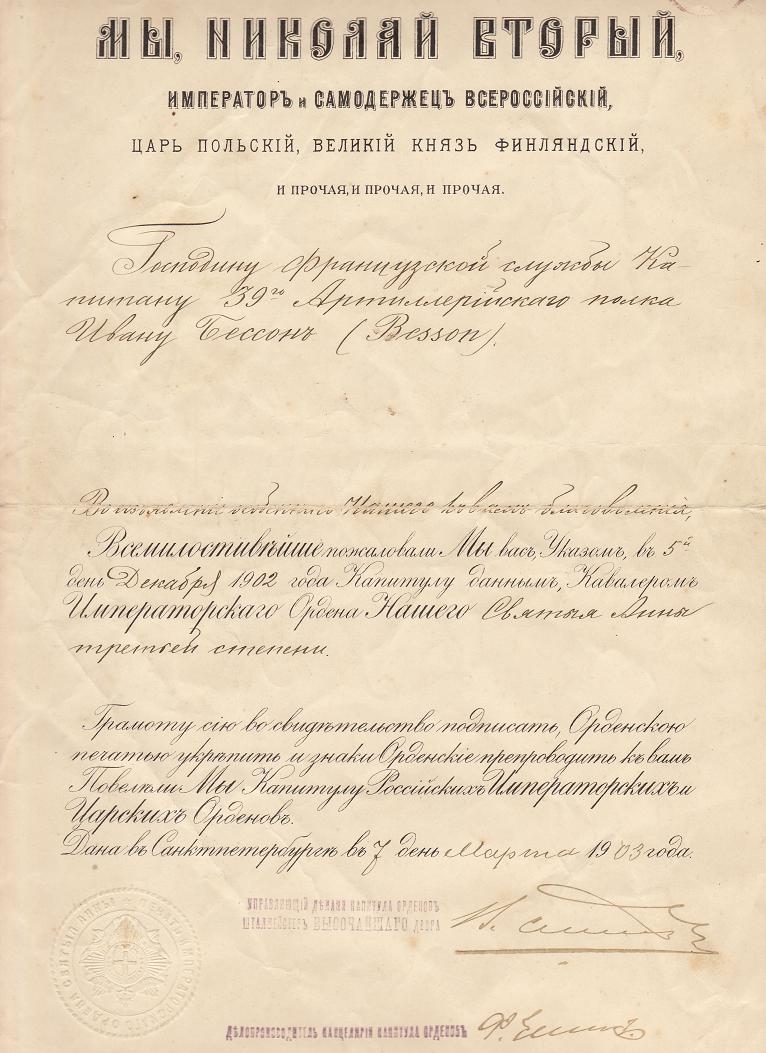 МЫ, НИКОЛАЙ ВТОРЫЙ,
ИМПЕРАТОРЪ и САМОДЕРЖЕЦЪ ВСЕРОССІЙСКІЙ,
ЦАРЬ ПОЛЬСКІЙ, ВЕЛИКІЙ КНЯЗЬ ФИНЛЯНДСКІЙ,
И ПРОЧАЯ, И ПРОЧАЯ, И ПРОЧАЯ.
Господину французской службы Ка-
питану 39го Артиллерійскаго полка
Ивану Бессонъ (Besson).
Во изъявленіе особеннаго Нашего къ вамъ благоволенія,
Всемилостивѣйше пожаловали Мы васъ, Указомъ, въ 5й
день Декабря 1902 года Капитулу даннымъ, Кавалеромъ
Императорскаго Ордена Нашего Святыя Анны
третьей степени.
Грамоту сію во свидѣтельство подписать, Орденскою
печатью укрѣпить и знаки Орденскіе препроводить къ вамъ
Повелѣли Мы Капитулу Россійскихъ Императорскихъ и
Царскихъ Орденовъ.
Дана въ Санктпетербургѣ въ 7 день Марта 1903 года.
УПРАВЛЯЮЩІЙ ДѢЛАМИ КАПИТУЛА ОРДЕНОВЪ
ШТАЛМЕЙСТЕРЪ ВЫСОЧАЙШАГО ДВОРА
ПЕЧАТЬ ИМПЕРАТОРСКАГО ОРДЕНА СВЯТЫЯ АННЫ
ДѢЛОПРОИЗВОДИТЕЛЬ КАНЦЕЛЯРІИ КАПИТУЛА ОРДЕНОВЪ